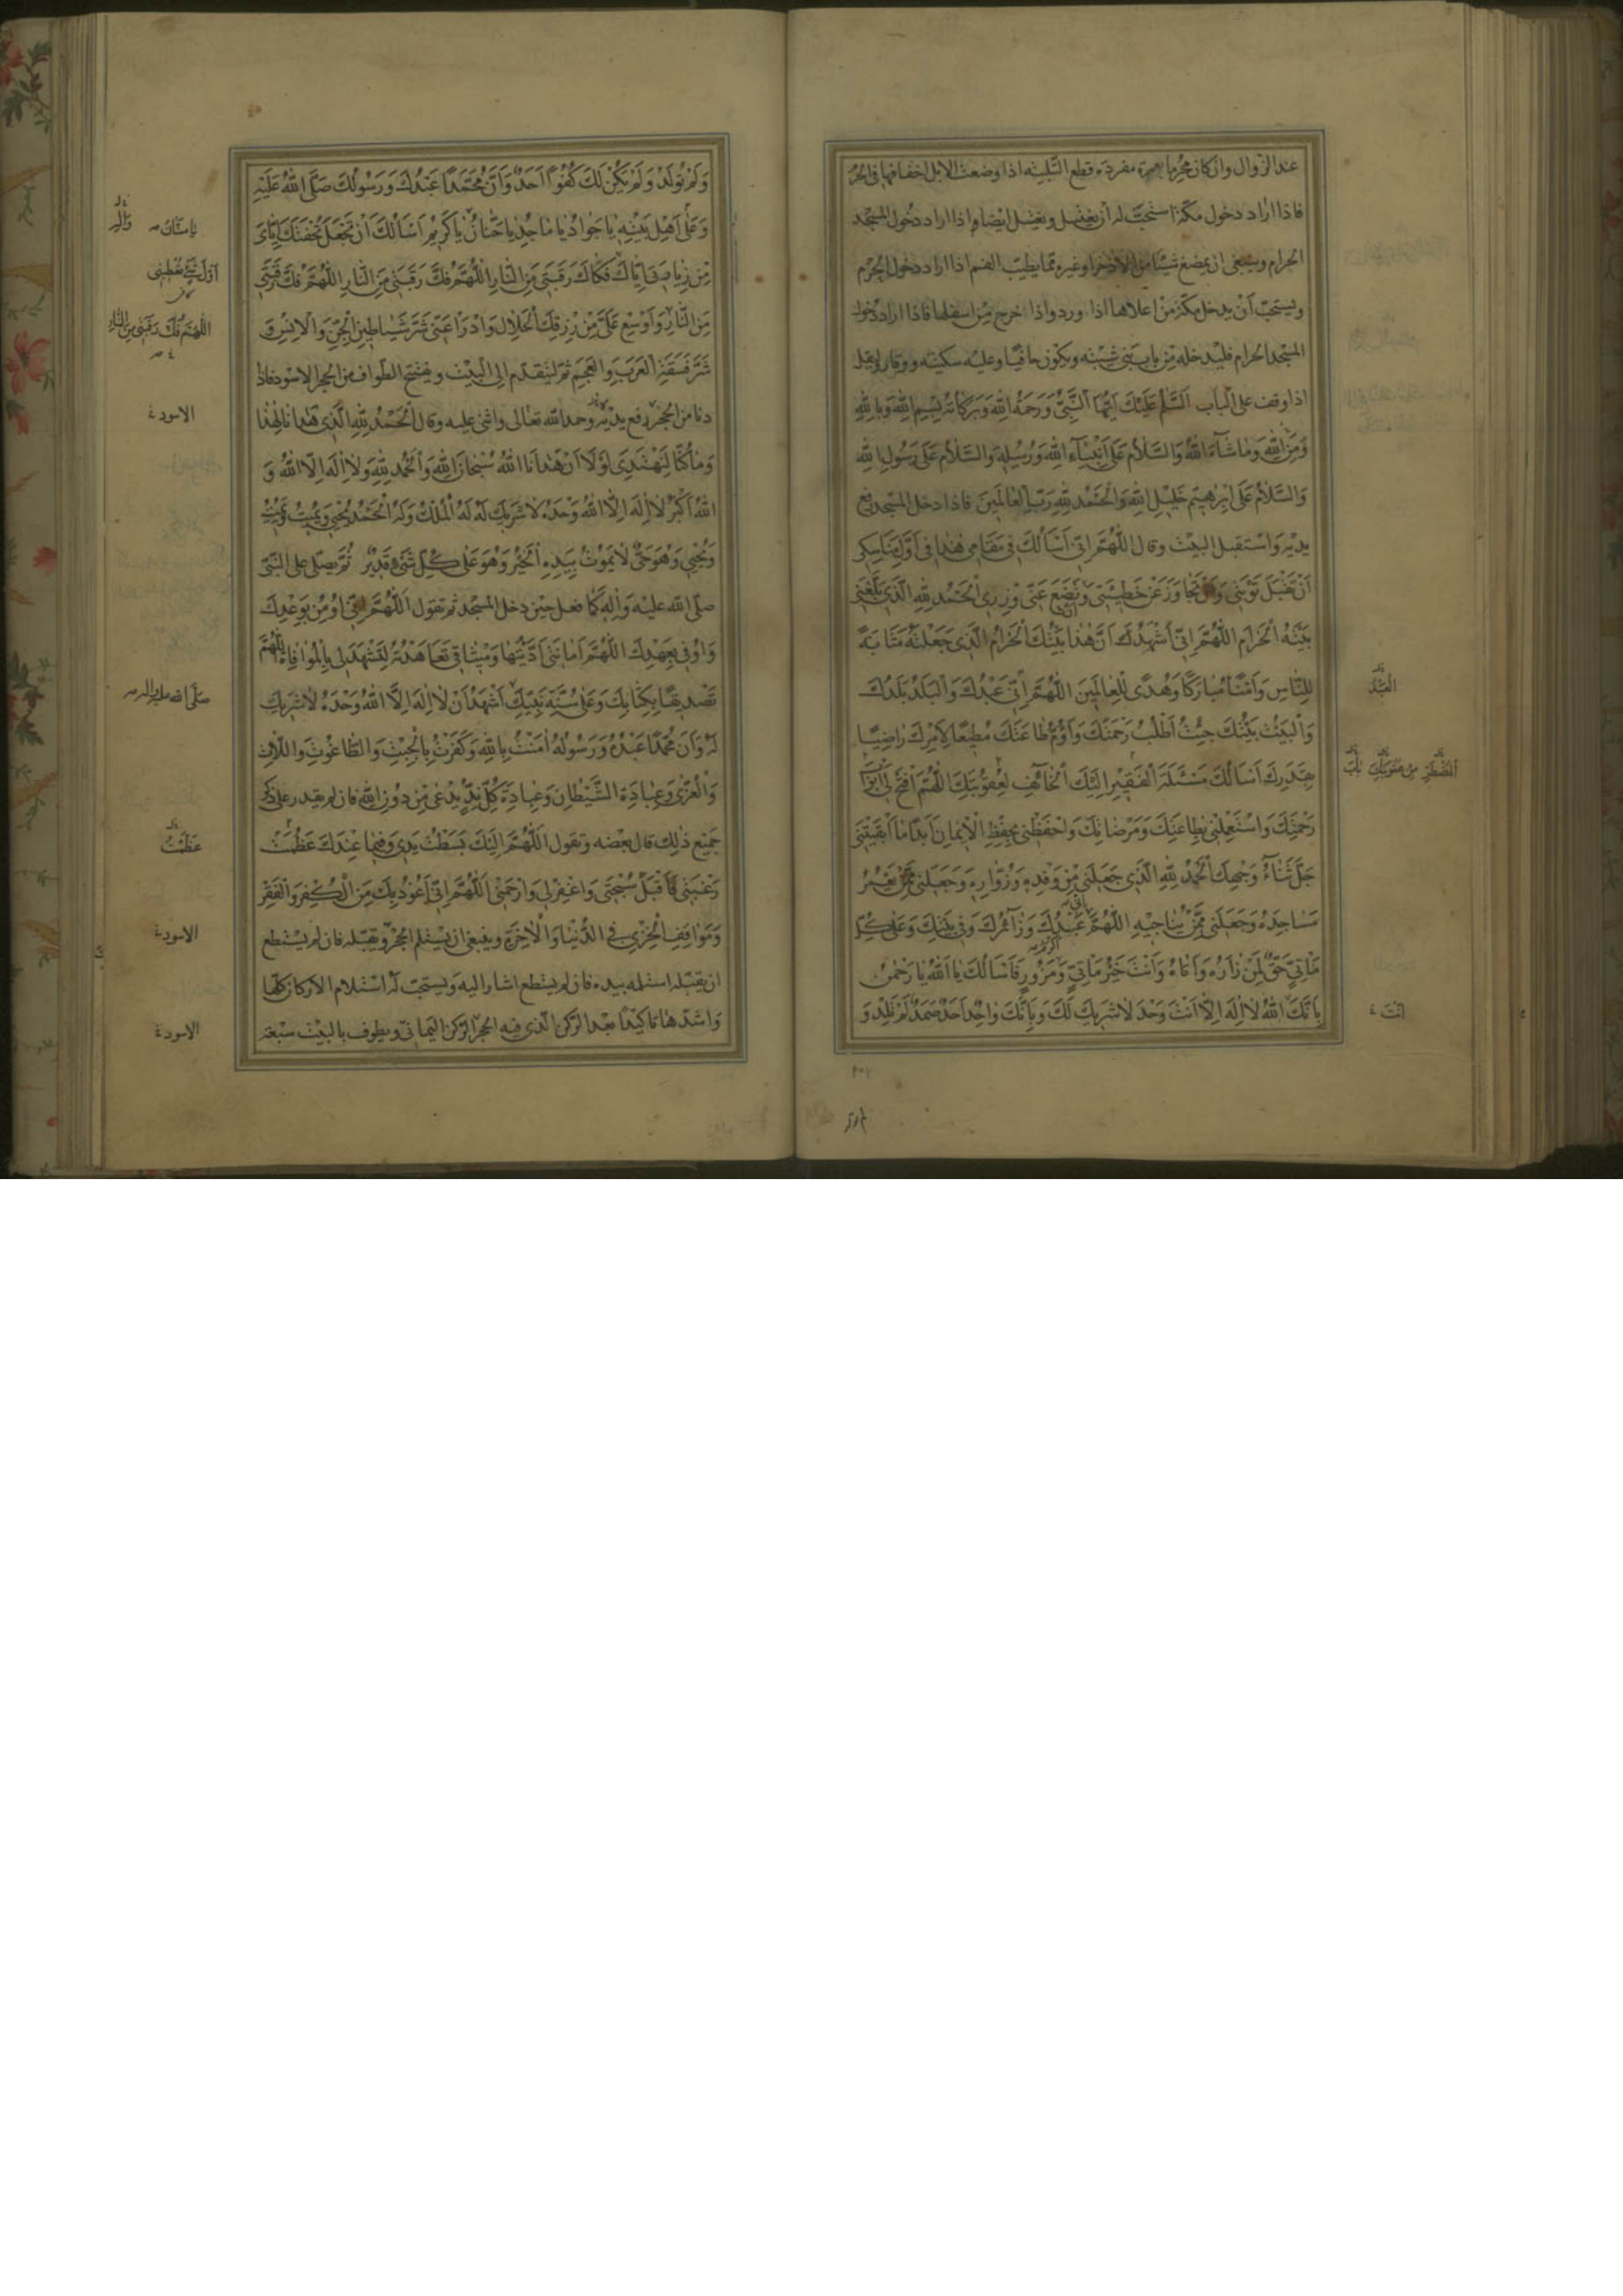 عند الزوال وان كان محرما بعمرة مفردة قطع التلبية اذا وضعت الابل اخفافها فى الحرم
فاذا اراد دخول مكة استحب له ان يغتسل ويغتسل ايضا واذا اراد دخول المسجد
الحرام وينبغى ان يمضغ شيئا من الاذخر او غيره مما يطيب الفم اذا اراد دخول الحرم
ويستحب أن يدخل مكة من اعلاها اذا ورد واذا خرج من اسفلها فاذا اراد دخول
المسجد الحرام فليدخله من باب بنى شيبة ويكون حافيا وعليه سكينة ووقار وليقل
اذا وقف على الباب اَلسَّلٰمُ عَلَيْكَ اَيُّهَا النَّبِىُّ وَرَحْمَةُ اللّٰهِ وَبَرَكَاتُهُ بِسْمِ اللّٰهِ وَبِاللّٰهِ
وَمِنَ اللّٰهِ وَمَا شَآءَ اللّٰهُ وَالسَّلَامُ عَلَى اَنْبِيَآءِ اللّٰهِ وَرُسُلِهِ وَالسَّلَامُ عَلَى رَسُولِ اللّٰهِ
وَالسَّلَامُ عَلَى اِبْرٰهِيْمَ خَلِيْلِ اللّٰهِ وَالْحَمْدُ لِلّٰهِ رَبِّ الْعَالَمِينَ فاذا دخل المسجد رفع
يديه واستقبل البيت وقال اَللّٰهُمَّ اِنِّى اَسْاَلُكَ فِى مَقَامِى هٰذَا فِى اَوَّلِ مَنَاسِكِى
اَنْ تَقْبَلَ تَوْبَتِى وَاَنْ تَجَاوَزَ عَنْ خَطِيئَتِى وَتَضَعَ عَنِّى وِزْرِى اَلْحَمْدُ لِلّٰهِ الَّذِى بَلَّغَنِى
بَيْتَهُ الْحَرَامَ اَللّٰهُمَّ اِنِّى اَشْهَدُ اَنَّ هٰذَا بَيْتُكَ الْحَرَامُ الَّذِى جَعَلْتَهُ مَثَابَةً
لِلنَّاسِ وَاَمْنًا مُبَارَكًا وَهُدًى لِلْعَالَمِينَ اَللّٰهُمَّ اِنِّى عَبْدُكَ وَالْبَلَدُ بَلَدُكَ
العَبْدُ
وَالْبَيْتُ بَيْتُكَ جِئْتُ اَطْلُبُ رَحْمَتَكَ وَاَؤُمُّ طَاعَتَكَ مُطِيْعًا لِاَمْرِكَ رَاضِيًا
بِقَدَرِكَ اَسْاَلُكَ مَسْئَلَةَ الْفَقِيْرِ اِلَيْكَ الْخَآئِفِ لِعُقُوبَتِكَ اَللّٰهُمَّ افْتَحْ لِى اَبْوَابَ
المُضْطَرِّ
رَحْمَتِكَ وَاسْتَعْمِلْنِى بِطَاعَتِكَ وَمَرْضَاتِكَ وَاحْفَظْنِى بِحِفْظِ الْاِيمَانِ اَبَدًا مَا اَبْقَيْتَنِى
جَلَّ ثَنَآءُ وَجْهِكَ اَلْحَمْدُ لِلّٰهِ الَّذِى جَعَلَنِى مِنْ وَفْدِهِ وَزُوَّارِهِ وَجَعَلَنِى مِمَّنْ يَعْمُرُ
مَسَاجِدَهُ وَجَعَلَنِى مِمَّنْ يُنَاجِيْهِ اَللّٰهُمَّ عَبْدُكَ وَزَآئِرُكَ وَفِى بَيْتِكَ وَعَلٰى كُلِّ
مَاْتِىٍّ حَقٌّ لِمَنْ زَارَهُ وَاَتَاهُ وَاَنْتَ خَيْرُ مَاْتِىٍّ وَمَزُورٍ فَاَسْاَلُكَ يَا اَللّٰهُ يَا رَحْمٰنُ
بِاَنَّكَ اللّٰهُ لَا اِلٰهَ اِلَّا اَنْتَ وَحْدَكَ لَا شَرِيكَ لَكَ وَبِاَنَّكَ وَاحِدٌ اَحَدٌ صَمَدٌ لَمْ تَلِدْ وَ
اَنْتَ
وَلَمْ تُولَدْ وَلَمْ يَكُنْ لَكَ كُفُوًا اَحَدٌ وَاَنَّ مُحَمَّدًا عَبْدُكَ وَرَسُولُكَ صَلَّى اللّٰهُ عَلَيْهِ
وَعَلٰى اَهْلِ بَيْتِهِ يَا جَوَادُ يَا مَاجِدُ يَا حَنَّانُ يَا كَرِيْمُ اَسْاَلُكَ اَنْ تَجْعَلَ تُحْفَتَكَ اِيَّاىَ
وَآلِهِ يا منّان
مِنْ زِيَارَتِى اِيَّاكَ فَكَاكَ رَقَبَتِى مِنَ النَّارِ اَللّٰهُمَّ فُكَّ رَقَبَتِى مِنَ النَّارِ اَللّٰهُمَّ فُكَّ رَقَبَتِى
اَوَّلَ شَىْءٍ تُعْطِيْنِى
مِنَ النَّارِ وَاَوْسِعْ عَلَىَّ مِنْ رِزْقِكَ الْحَلَالِ وَادْرَأْ عَنِّى شَرَّ شَيَاطِيْنِ الْجِنِّ وَالْاِنْسِ وَ
اللّٰهُمَّ فُكَّ رَقَبَتِى مِنَ النَّارِ
شَرَّ فَسَقَةِ الْعَرَبِ وَالْعَجَمِ ثم ليتقدم الى البيت ويفتتح الطواف من الحجر الاسود فاذا
دنا من الحجر رفع يديه وحمد الله تعالى واثنى عليه وقال اَلْحَمْدُ لِلّٰهِ الَّذِى هَدَانَا لِهٰذَا
الاسود
وَمَا كُنَّا لِنَهْتَدِىَ لَوْلَا اَنْ هَدَانَا اللّٰهُ سُبْحَانَ اللّٰهِ وَالْحَمْدُ لِلّٰهِ وَلَا اِلٰهَ اِلَّا اللّٰهُ وَ
اللّٰهُ اَكْبَرُ لَا اِلٰهَ اِلَّا اللّٰهُ وَحْدَهُ لَا شَرِيكَ لَهُ لَهُ الْمُلْكُ وَلَهُ الْحَمْدُ يُحْيِى وَيُمِيتُ وَيُمِيتُ
وَيُحْيِى وَهُوَ حَىٌّ لَا يَمُوتُ بِيَدِهِ الْخَيْرُ وَهُوَ عَلٰى كُلِّ شَىْءٍ قَدِيْرٌ ثم يصلى على النبى
صلى الله عليه واله كما فعل حين دخل المسجد ثم تقول اَللّٰهُمَّ اِنِّى اُومِنُ بِوَعْدِكَ
وَاُوفِى بِعَهْدِكَ اَللّٰهُمَّ اَمَانَتِى اَدَّيْتُهَا وَمِيْثَاقِى تَعَاهَدْتُهُ لِتَشْهَدَ لِى بِالْمُوَافَاةِ اَللّٰهُمَّ
تَصْدِيقًا بِكِتَابِكَ وَعَلٰى سُنَّةِ نَبِيِّكَ اَشْهَدُ اَنْ لَا اِلٰهَ اِلَّا اللّٰهُ وَحْدَهُ لَا شَرِيكَ
صَلَّى الله عليه واله
لَهُ وَاَنَّ مُحَمَّدًا عَبْدُهُ وَرَسُولُهُ اٰمَنْتُ بِاللّٰهِ وَكَفَرْتُ بِالْجِبْتِ وَالطَّاغُوتِ وَاللَّاتِ
وَالْعُزّٰى وَعِبَادَةِ الشَّيْطَانِ وَعِبَادَةِ كُلِّ نِدٍّ يُدْعٰى مِنْ دُونِ اللّٰهِ فان لم يقدر على ذكر
جميع ذلك قال بعضه وتقول اَللّٰهُمَّ اِلَيْكَ بَسَطْتُ يَدِى وَفِيمَا عِنْدَكَ عَظُمَتْ
عَظُمَتْ
رَغْبَتِى فَاقْبَلْ سُبْحَتِى وَاغْفِرْ لِى وَارْحَمْنِى اَللّٰهُمَّ اِنِّى اَعُوذُ بِكَ مِنَ الْكُفْرِ وَالْفَقْرِ
وَمَوَاقِفِ الْخِزْىِ فِى الدُّنْيَا وَالْاٰخِرَةِ وينبغى ان يستلم الحجر ويقبله فان لم يستطع
الاسود
ان يقبله استلمه بيده فان لم يستطع اشار اليه ويستحب له استلام الاركان كلها
واشدها تاكيدا بعد الركن الذى فيه الحجر الركن اليمانى ويطوف بالبيت سبعة
الاسود